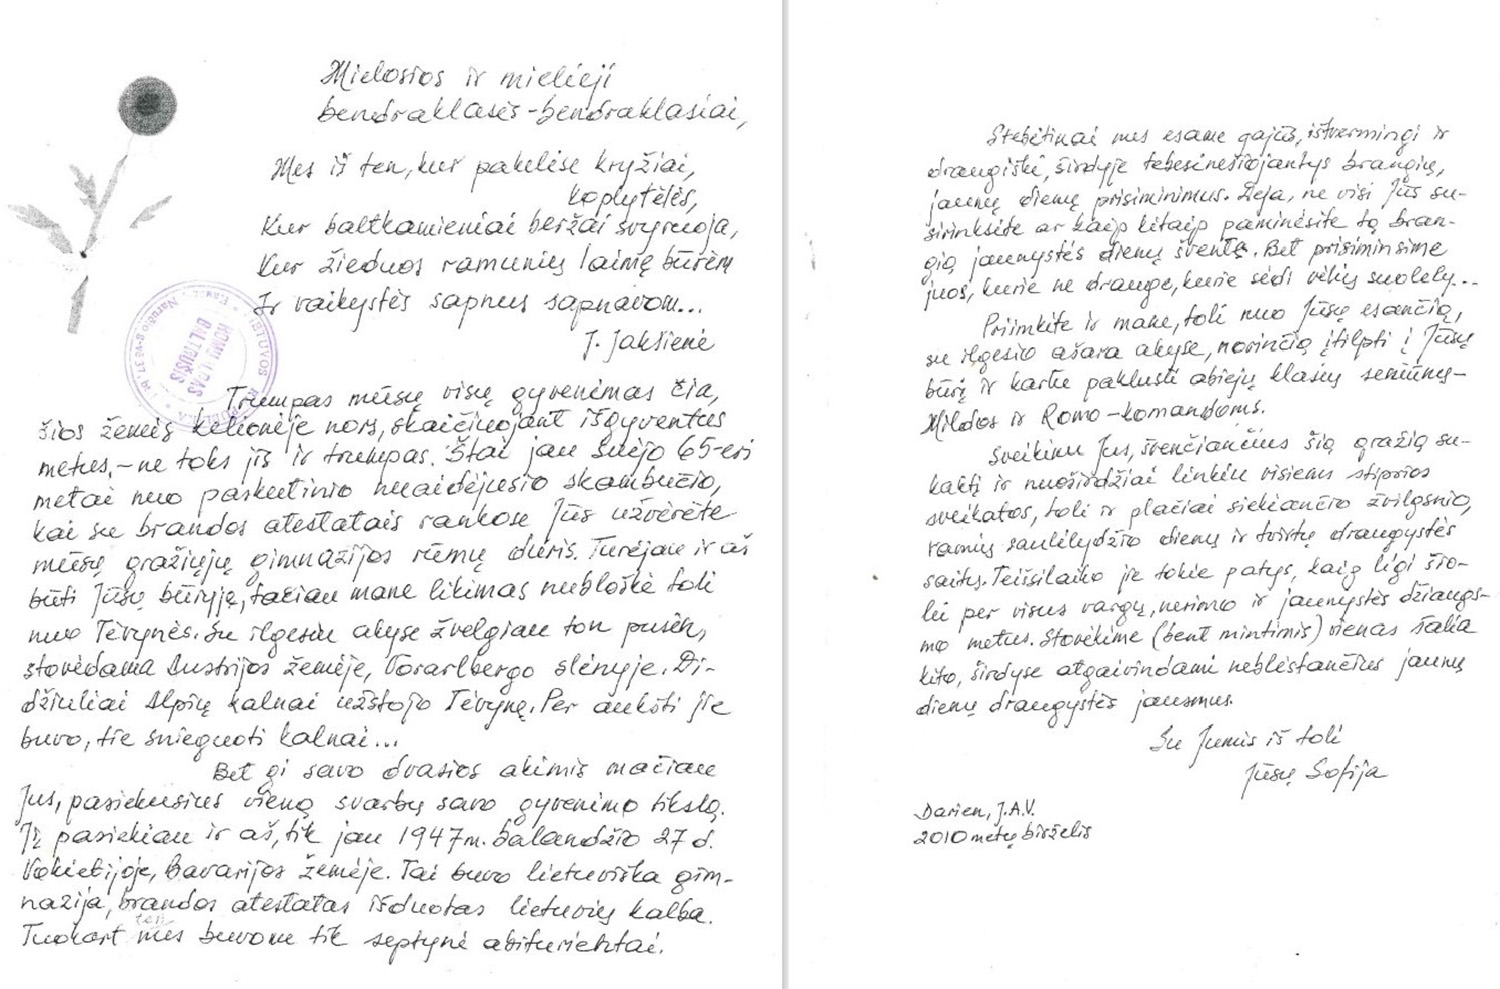 Mielosios ir mielieji
bendraklasės-bendraklasiai,
Mes iš ten, kur pakelėse kryžiai,
koplytėlės,
Kur baltkamieniai beržai svyruoja,
Kur žieduos ramunių laimę būrėm
Ir vaikystės sapnus sapnavom...
J. Jakšienė
LIETUVOS RESPUBLIKA
ROMUALDAS
BALTRUŠIS
Trumpas mūsų visų gyvenimas čia,
šios žemės kelionėje nors, skaičiuojant išgyventus
metus, – ne toks jis ir trumpas. Štai jau suėjo 65-eri
metai nuo paskutinio nuaidėjusio skambučio,
kai su brandos atestatais rankose Jūs užvėrėte
mūsų gražiųjų gimnazijos rūmų duris. Turėjau ir aš
būti Jūsų būryje, tačiau mane likimas nubloškė toli
nuo Tėvynės. Su ilgesiu akyse žvelgiau ton pusėn,
stovėdama Austrijos žemėje, Vorarlbergo slėnyje. Di-
džiuliai Alpių kalnai užstojo Tėvynę. Per aukšti jie
buvo, tie snieguoti kalnai...
Bet gi savo dvasios akimis mačiau
Jus, pasiekusius vieną svarbų savo gyvenimo tikslą.
Jį pasiekiau ir aš, tik jau 1947 m. balandžio 27 d.
Vokietijoje, Bavarijos žemėje. Tai buvo lietuviška gim-
nazija, brandos atestatas išduotas lietuvių kalba.
Tuokart ten mes buvom tik septyni abiturientai.
Stebėtinai mes esame gajūs, ištvermingi ir
draugiški, širdyje tebesinešiojantys brangių,
jaunų dienų prisiminimus. Deja, ne visi Jūs su-
sirinksite ar kaip kitaip paminėsite tą bran-
gią jaunystės dienų šventę. Bet prisiminsime
juos, kurie ne drauge, kurie sėdi vėlių suolely...
Priimkite ir mane, toli nuo Jūsų esančią,
su ilgesio ašara akyse, norinčią įtilpti į Jūsų
būrį ir kartu paklusti abiejų klasių seniūnų–
Mildos ir Romo–komandoms.
Sveikinu Jus, švenčiančius šią gražią su-
kaktį ir nuoširdžiai linkiu visiems stiprios
sveikatos, toli ir plačiai siekiančio žvilgsnio,
ramių saulėlydžio dienų ir tvirtų draugystės
saitų. Teišsilaiko jie tokie patys, kaip ligi šio-
lei per visus vargų, nerimo ir jaunystės džiaugs-
mo metus. Stovėkime (bent mintimis) vienas šalia
kito, širdyse atgaivindami neblėstančius jaunų
dienų draugystės jausmus.
Su Jumis iš toli
Jūsų Sofija
Darien, J.A.V.
2010 metų birželis